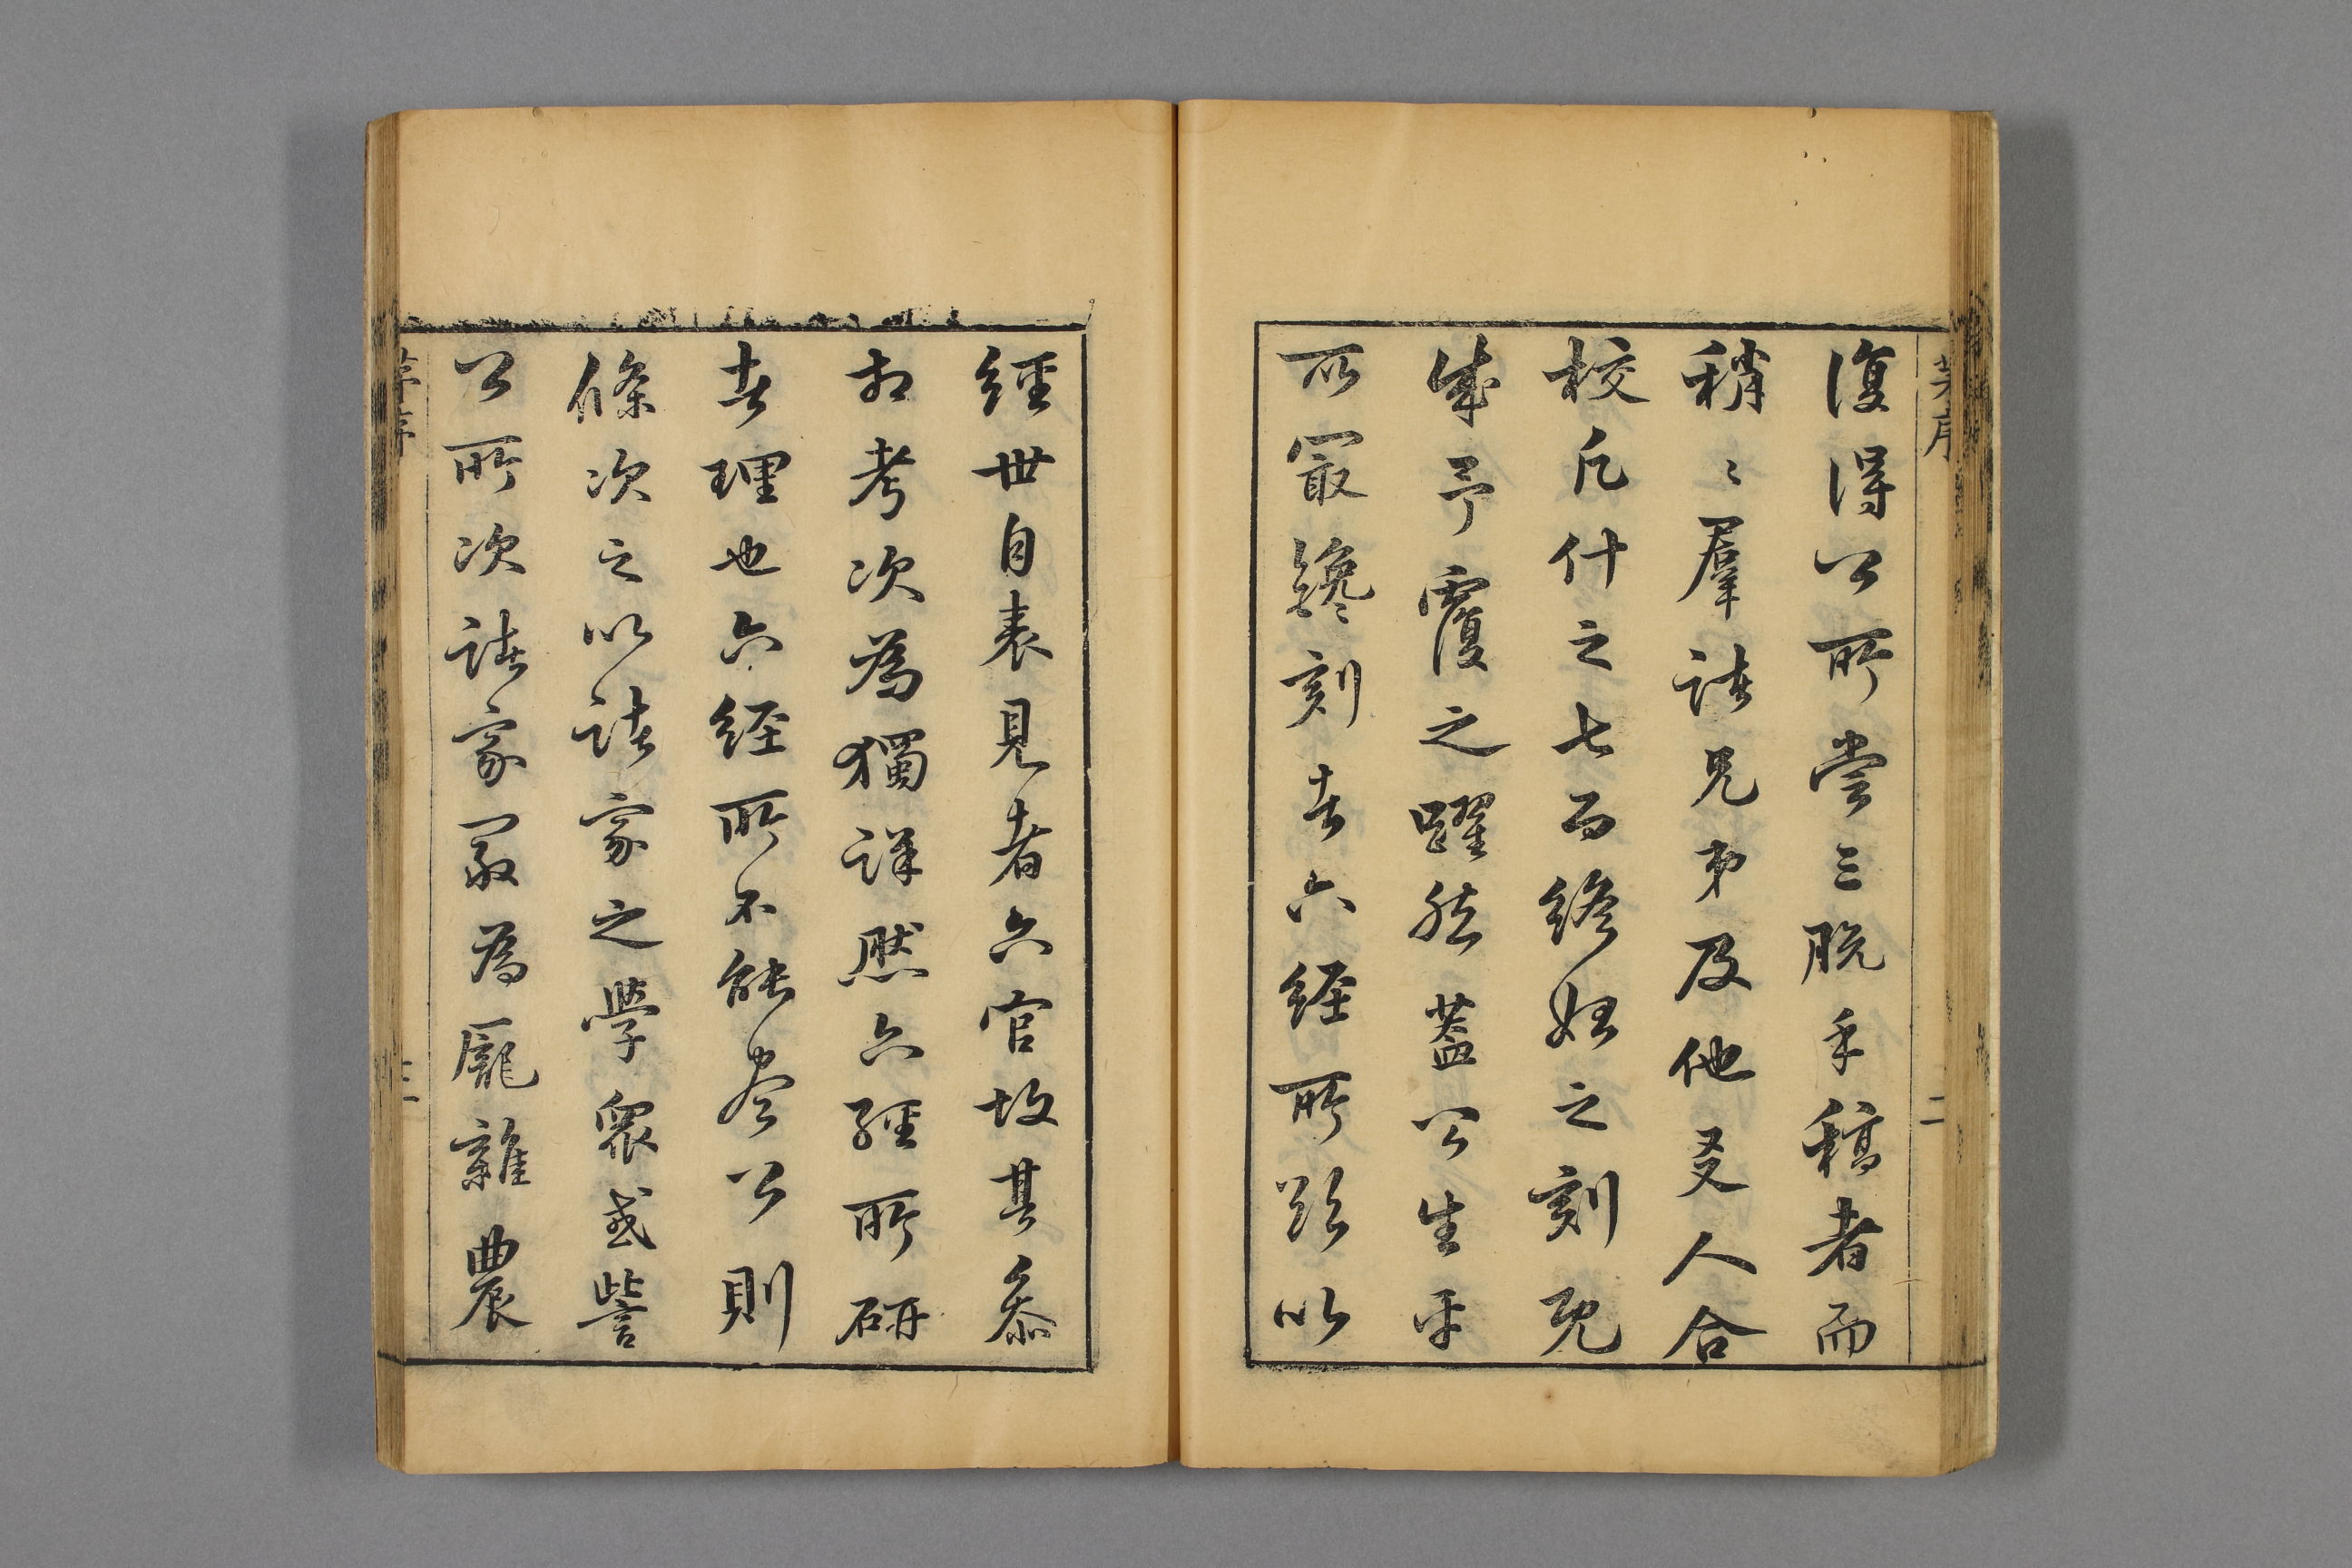 茅序
二
復得公所嘗三脫手稿者而
稍〻羣諸兄弟及他友人合
校凡什之七而終始之刻既
成予覆之躍然蓋公生平
所最纔刻者六經所欲以
經世自表見者六官故其叅
相考次為獨詳然六經所研
者理也六經所不能盡公則
條次之以諸家之學衆或訾
公所次諸家最為龎雜農
茅序
三